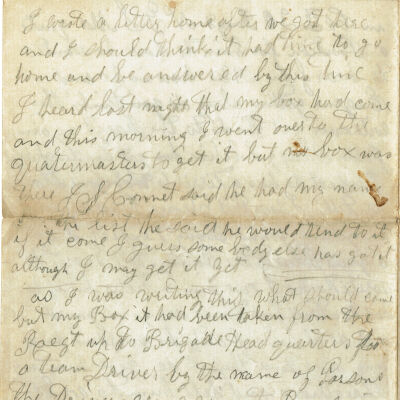 I wrote a letter home after we got here
and I should think it had time to go
home and be answered by this time
I heard last night that my box had come
and this morning I went over to the
quatermasters to get it but no box was
there J S Connet said he had my name
the list he said he would tend to it
if it come I guess some body else has got it
although I may get it yet
as I was writing this what should come
but my Box it had been taken from the
Raegt up to Brigade Head quarters
a team Driver by the name of Parsons
the Driver